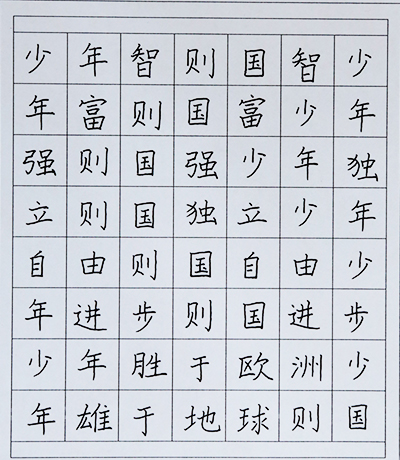 少年智则国智少
年富则国富少年
强则国强少年独
立则国独立少年
自由则国自由少
年进步则国进步
少年胜于欧洲少
年雄于地球则国